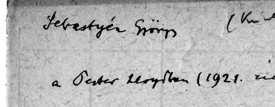 Sebestyén György (Kun
a Pester Lloydban (1921.